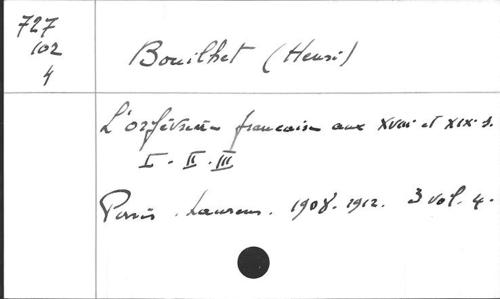 727
102
4
Bouilhet (Henri)
L'orfèvrerie française aux XVIII et XIX s.
I. II. III
Paris. Laurens. 1908-1912. 3 vol. 4.